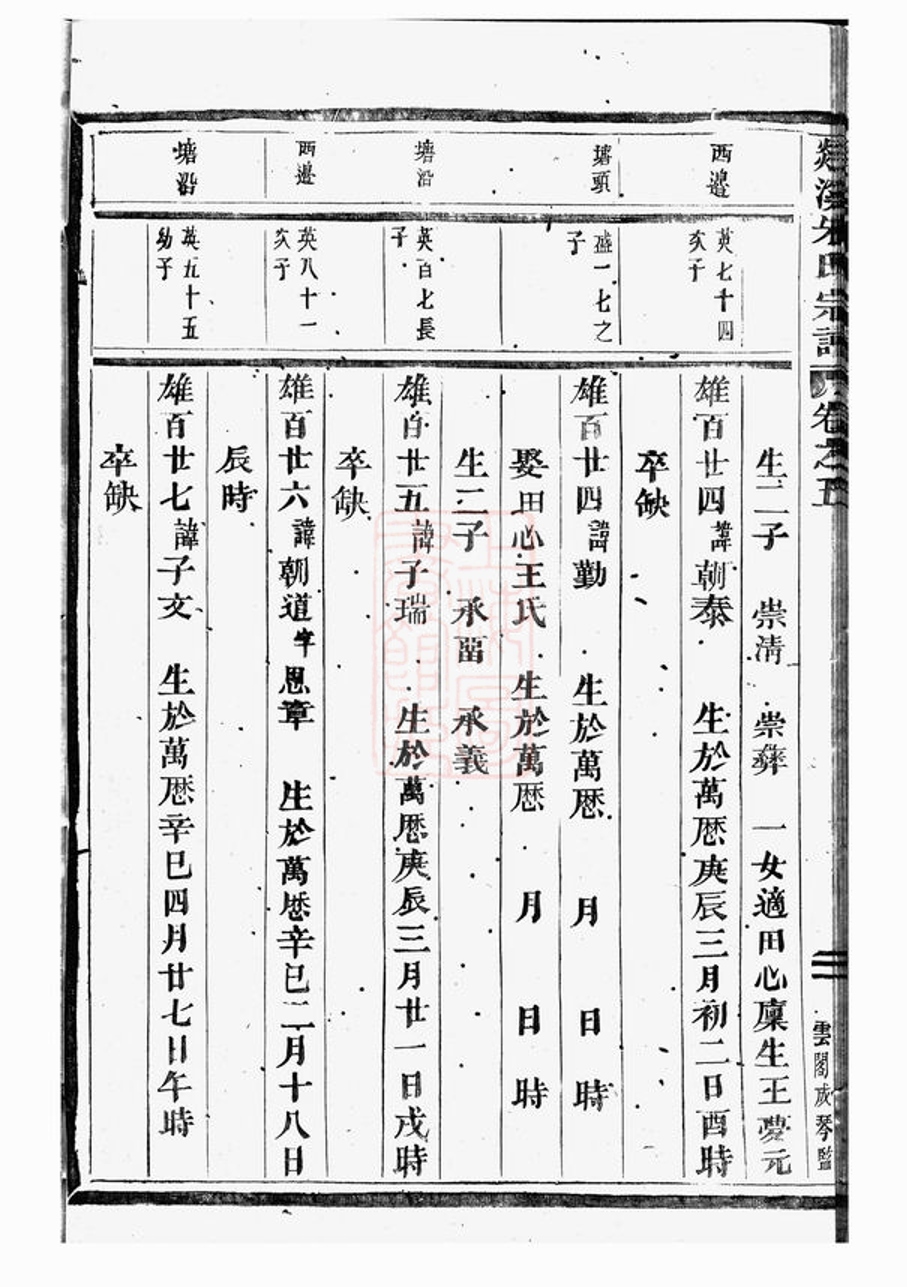 氏宗譜 卷之五
雲閣成琴監
生二子 崇清 崇彝 一女適田心廩生王夢元
西邊
英七十四次子
雄百廿四諱朝泰 生於萬厯庚辰三月初二日酉時
卒缺
塘頭
盛一七之子
雄百廿四諱勤 生於萬厯 月 日 時
娶田心王氏 生於萬厯 月 日 時
生二子 承畱 承義
塘沿
英百七長子
雄百廿五諱子瑞 生於萬厯庚辰三月廿一日戌時
卒缺
西邊
英八十一次子
雄百廿六諱朝道字思章 生於萬厯辛巳二月十八日
辰時
塘沿
英五十五幼子
雄百廿七諱子文 生於萬厯辛巳四月廿七日午時
卒缺